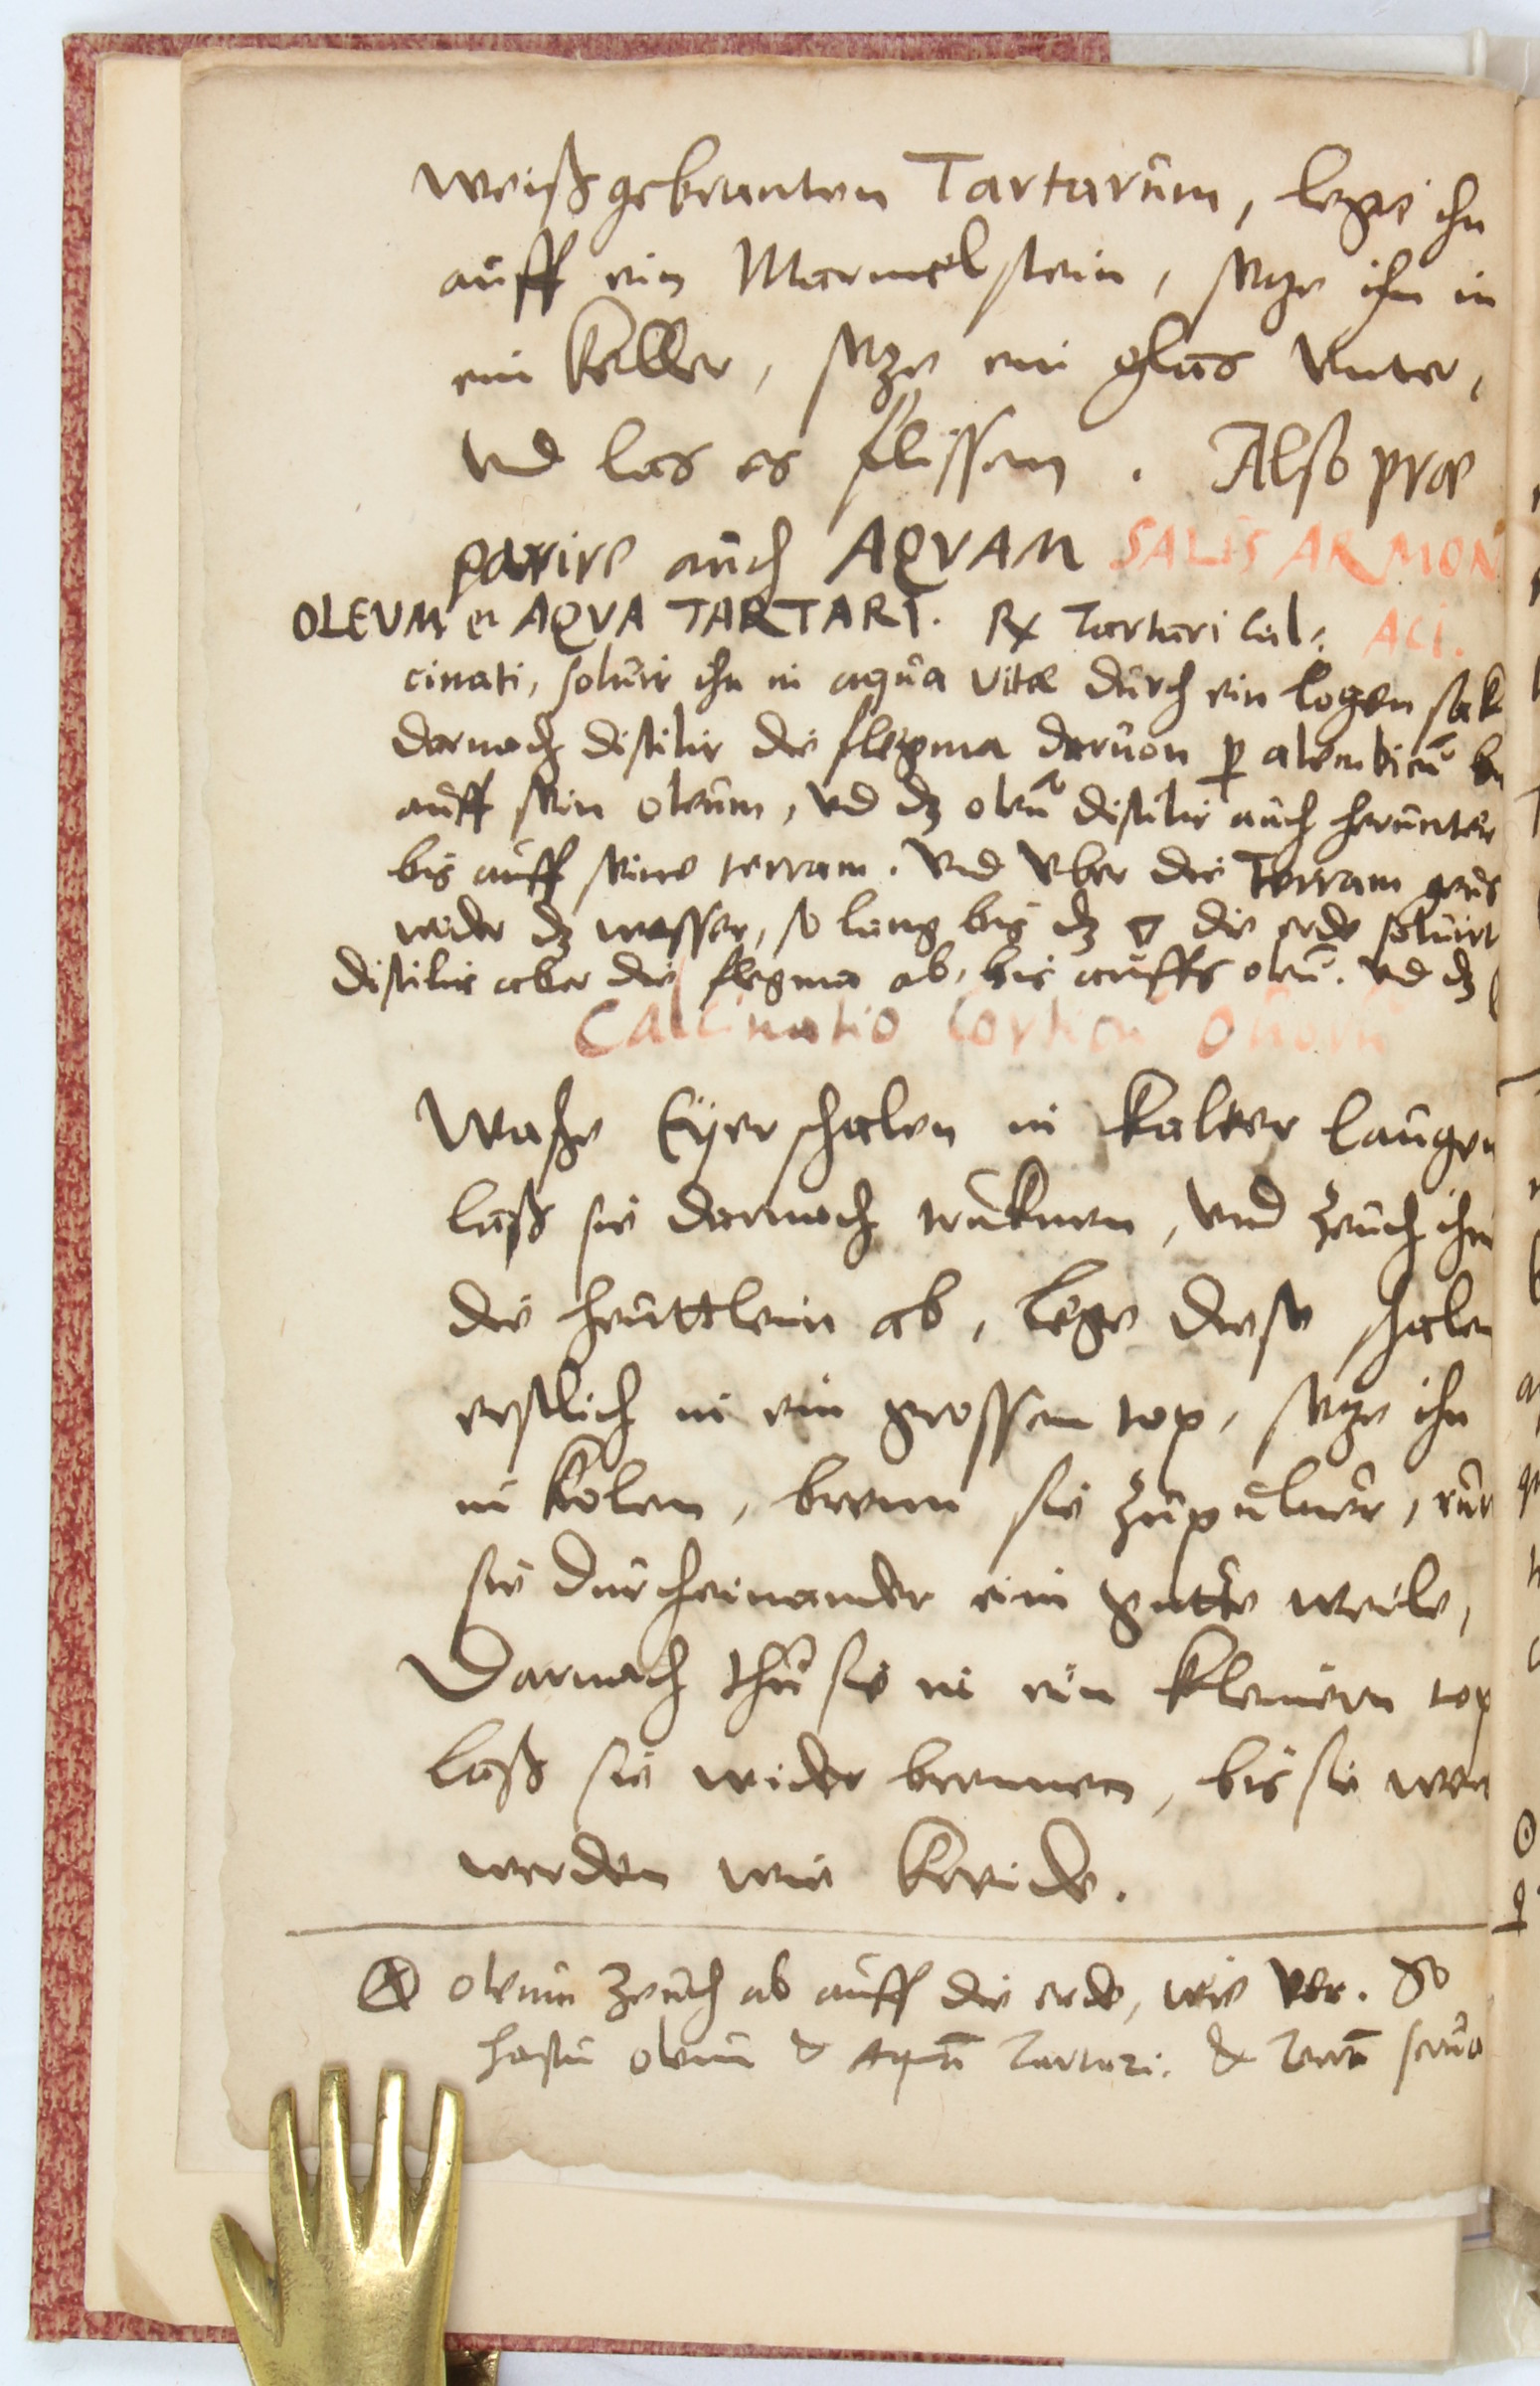 weißgebranten Tartarum, lege ihn
auff ein Marmelstein, setze ihn in
ein Keller, setze ein glas vnter,
vnd las es flissen. Also præ
parire auch AQVAM SALIS ARMON
ACI.
OLEVM et AQVA TARTARI. ℞ Tartari cal:
cinati, soluir ihn in aqua vitæ durch ein logen sak
darnach distilir die flegma daruon ꝑ alembicū
auff sein oleum, vnd dz oleū distilir auch herunter
bis auff seine terram. Vnd vber die Terram geus
wider dz wasser, so lang bis dz 🜄 die erde soluirt
distilir aber die flegma ab, bis auffs oleū. vnd dz
Calcinatio Corticū Ouorū
Wasche Eyerschalen in kalter laugen
laß sie darnach truknen, vnd zeuch ihn
die heuttlein ab, lege diese schalen
erstlich in ein grossen top, setze ihn
in Kolen, brenn sie zu puluer, rür
sie durcheinander ein gutte weile,
Darnach thu sie in ein kleinern top
laß sie wider brennen, bis sie
werden wie Kreide.
oleum zeuch ab auff die erde, wie vor. So
hastu oleum & aquā Tartari. & terrā